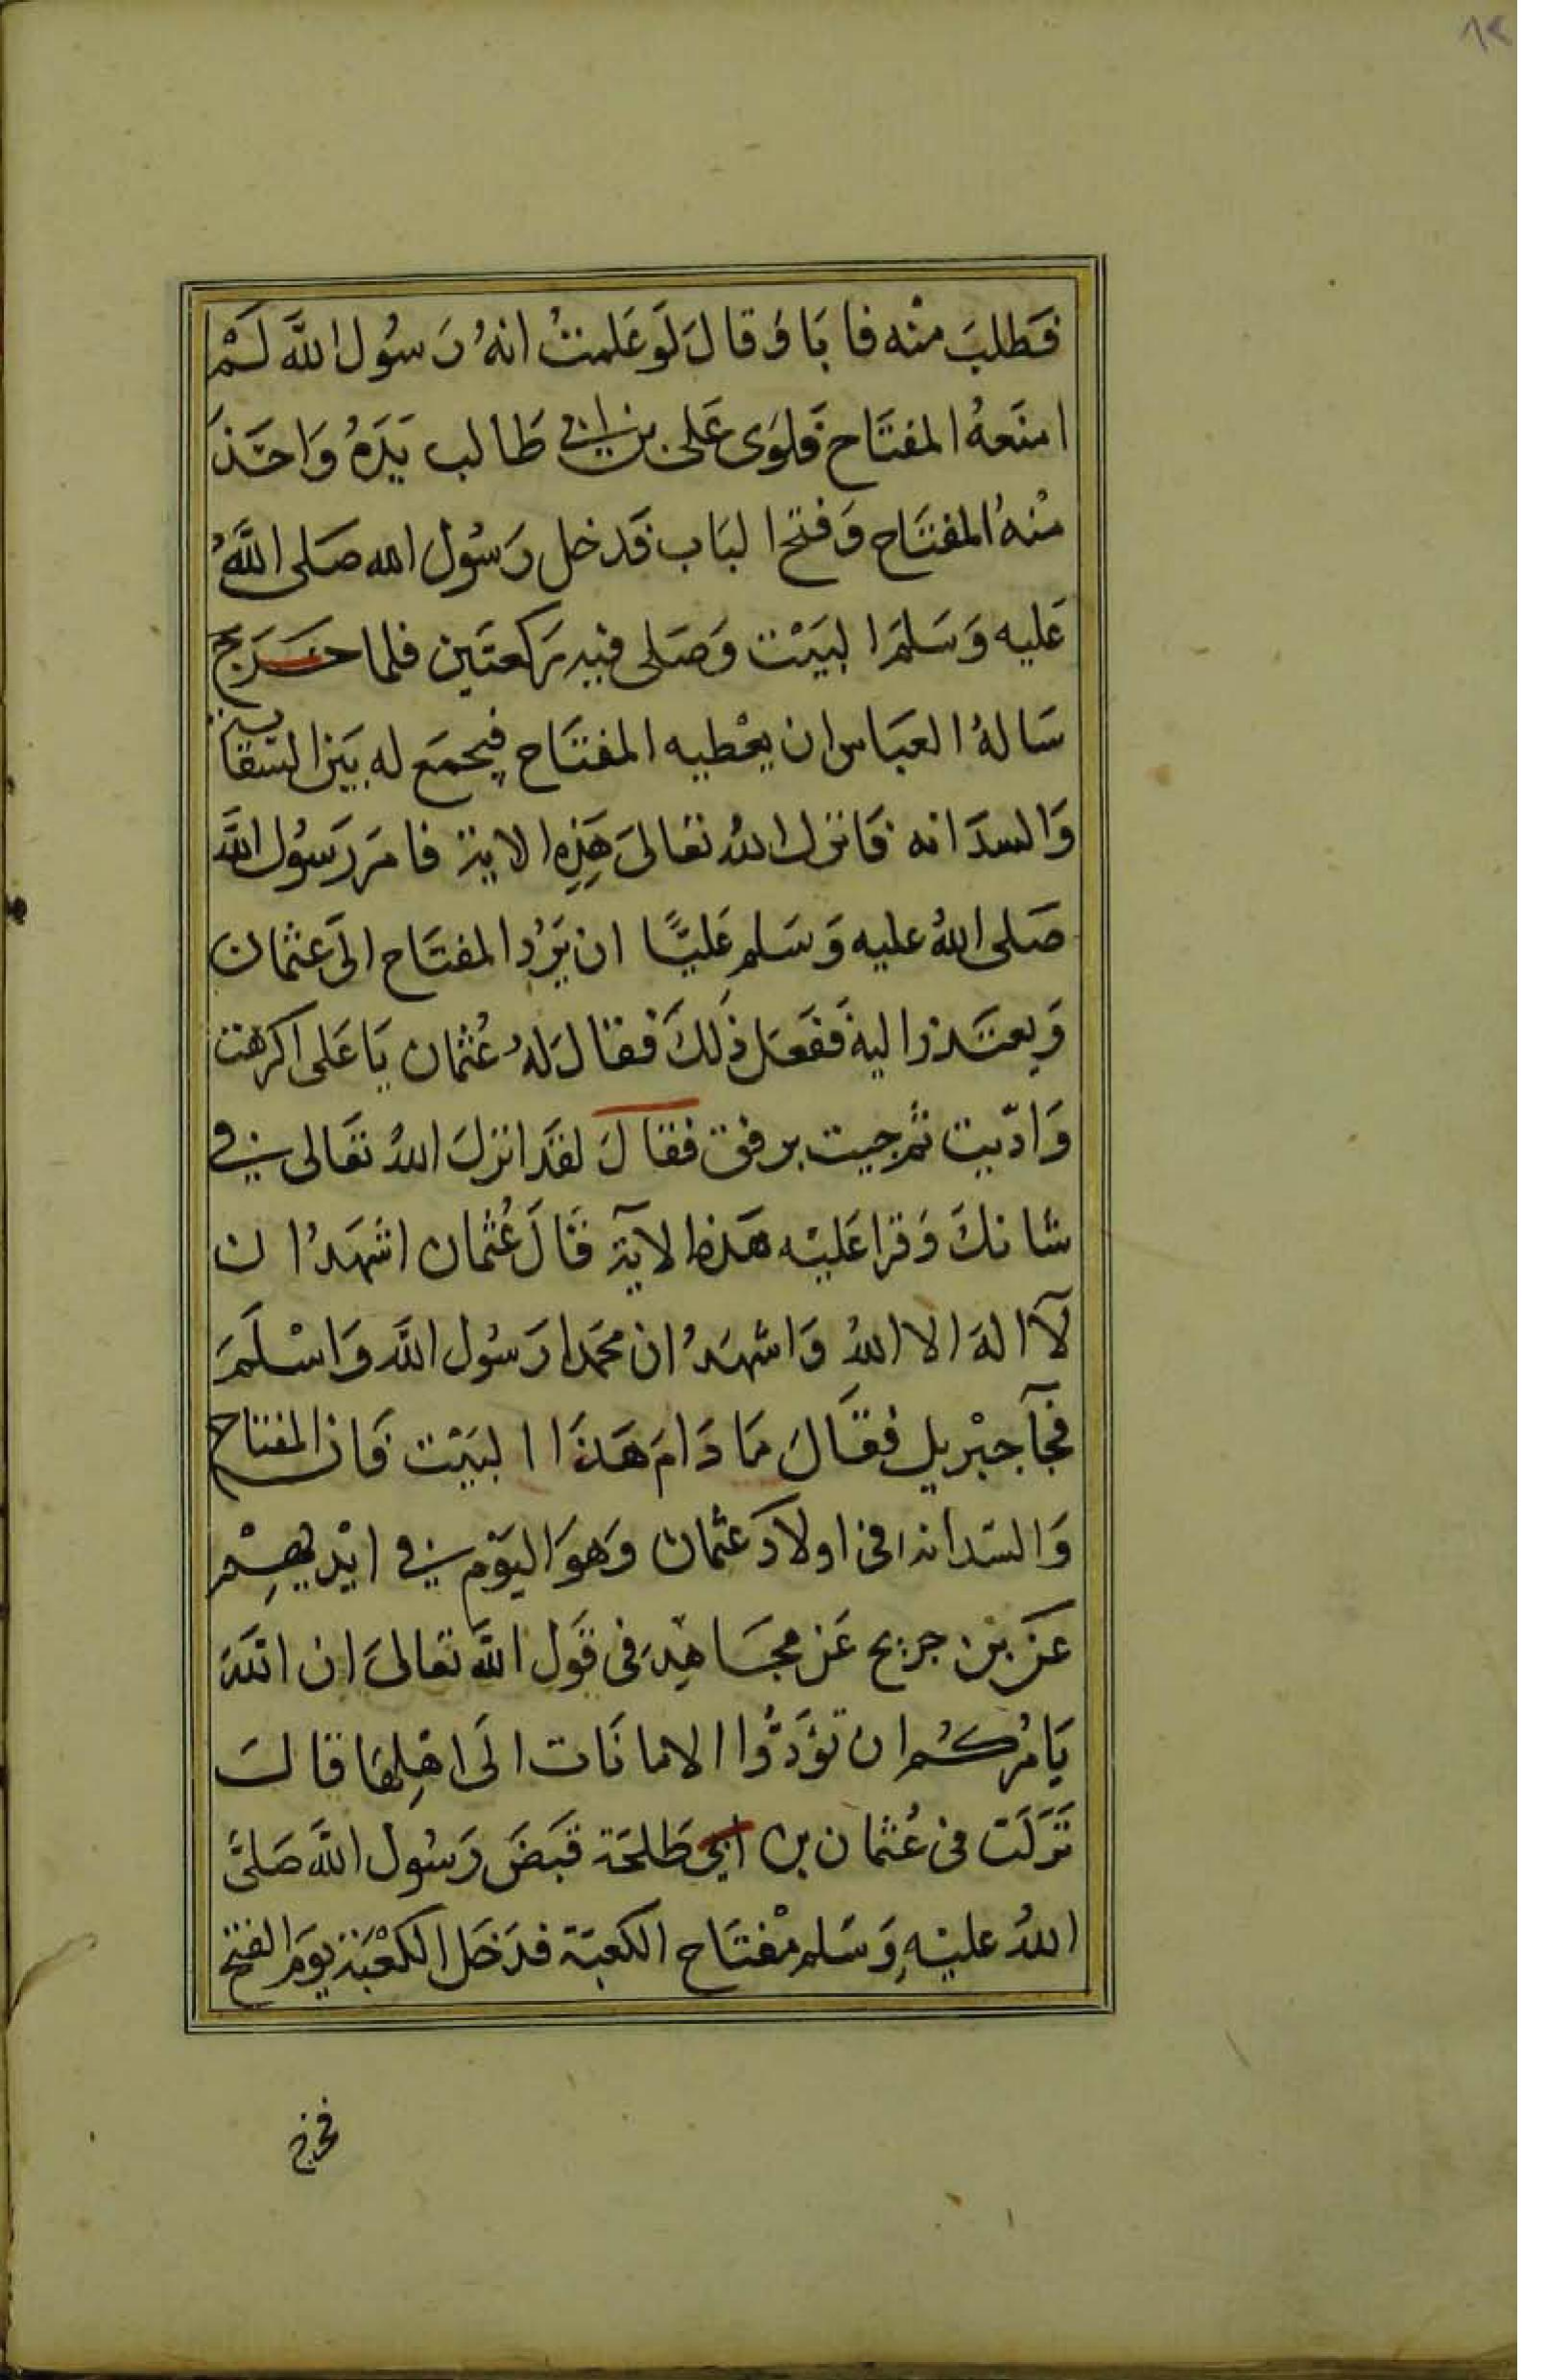 ١٢
فَطلبَ منْه فا بَا وَقالَ لَو عَلمتُ انهُ رَسُول اللَّه لَمْ
امنَعهُ المفتَاح فَلوَى عَلى بن ابي طَالب يَدَهُ وَاخَذَ
منْهُ المفتَاح وَفتح البَاب فَدخل رَسُول الله صَلى اللَّهُ
عَليه وَسَلمَ البَيْت وَصَلى فيه ركعتَين فلما خَرَج
سَالهُ العبَاس ان يعْطيه المفتَاح فيجمَع له بَين السقاية
وَالسدَانه فَانزل اللهُ تعَالىَ هَذِهِ الاية فامَر رَسُول اللَّه
صَلى اللهُ عليه وَسَلم عَليًّا ان يَرُد المفتَاح الَى عثمَان
وَيعتَذر اليه فَفعَل ذَلكَ فقَالَ لهُ عُثمان يَا عَلى اكرهت
وَاذّيت ثم جيت برفق فقَالَ لقَد انزلَ اللهُ تعَالى في
شانكَ وَقرا عَليْه هَذه الآيَة فَقَالَ عُثمان اشهَدُ ان
لآ الهَ الا اللهُ وَاشهَدُ ان محمَدا رَسُول اللَّه وَاسْلَمَ
فجآ جبْريل فقَالَ مَا دَامَ هَذَا البَيْت فَان المفتاح
وَالسَدانه في اولادَ عثمان وَهوَ اليَوْم في ايْديهِمْ
عَن بن جريج عَن مجَاهِد في قَول اللَّه تعَالىَ ان اللَّهَ
يَامُركُم ان تؤَدُّوا الامانَات الَى اهْلِهَا قالَ
نَزلَت في عُثمان بن ابي طَلحَة قبَضَ رَسُول اللَّه صَلىَّ
اللهُ عليْهِ وَسَلم مفْتَاح الكعبَة فدَخَل الكعْبَة يَومَ الفتح
فخرج